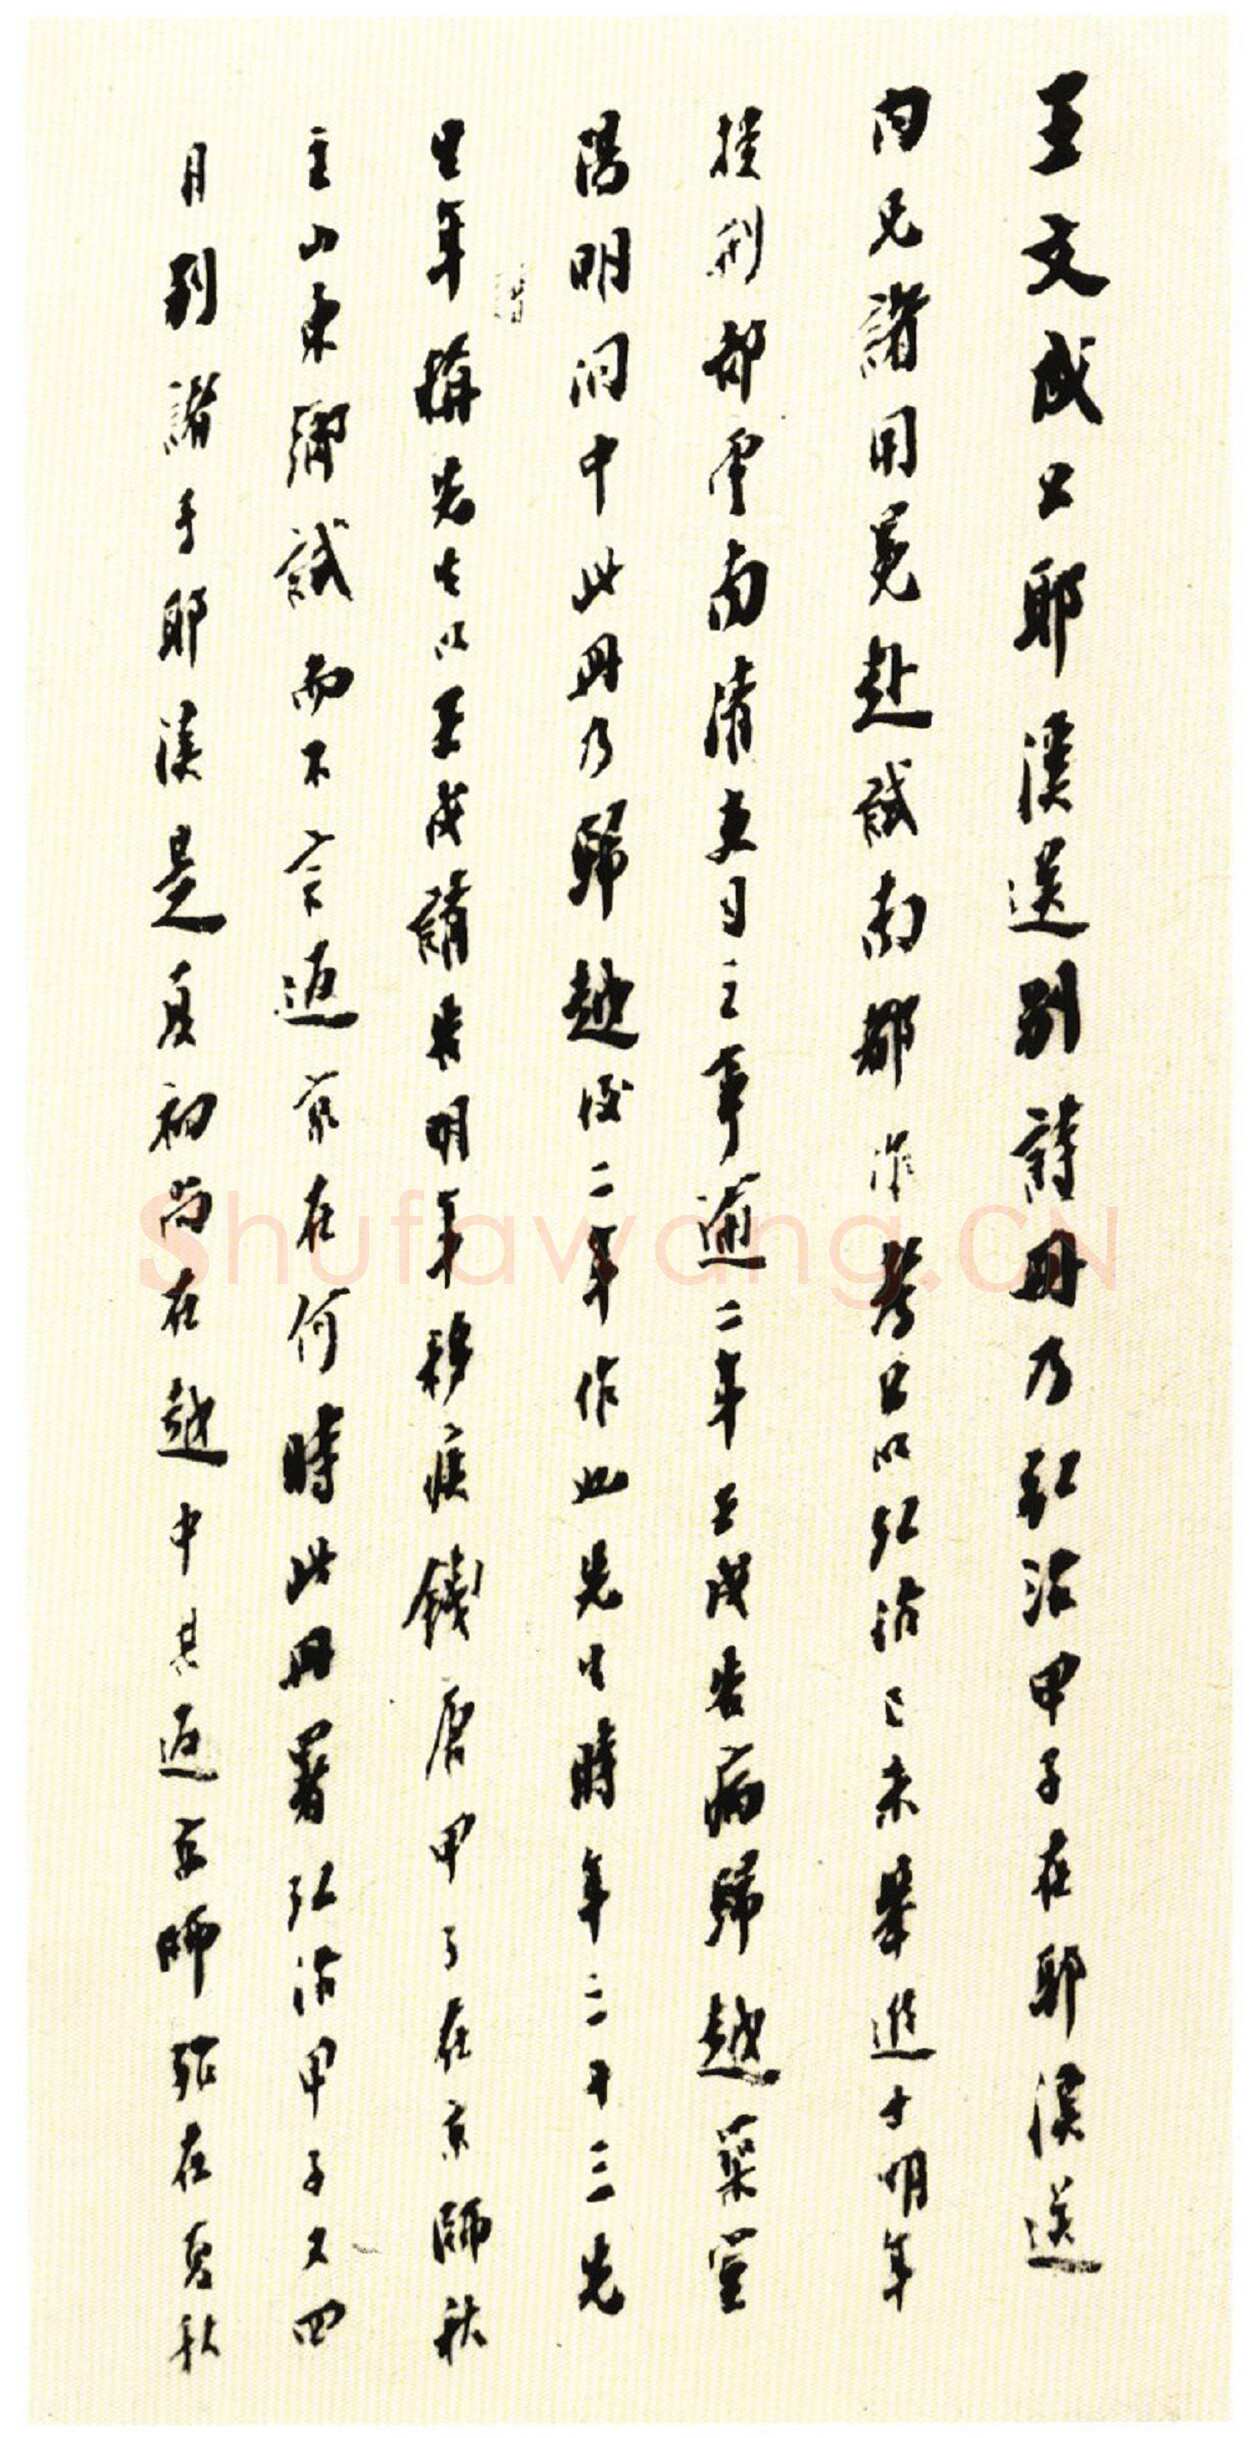 王文成公耶溪送別詩冊乃弘治甲子在耶溪送
内兄諸用冕赴試南都作考公以弘治己未舉進士明年
授刑部雲南清吏司主事逾二年壬戌告病歸越築室
陽明洞中此冊乃歸越後二年作也先生時年三十三先
生年構先生以壬戌請告明年移疾錢唐甲子在京師秋
主山東鄉試而不言返京在何時此冊署弘治甲子又四
月別諸于耶溪是夏初尚在越中其返京師張在夏秋
Shufawang.CN